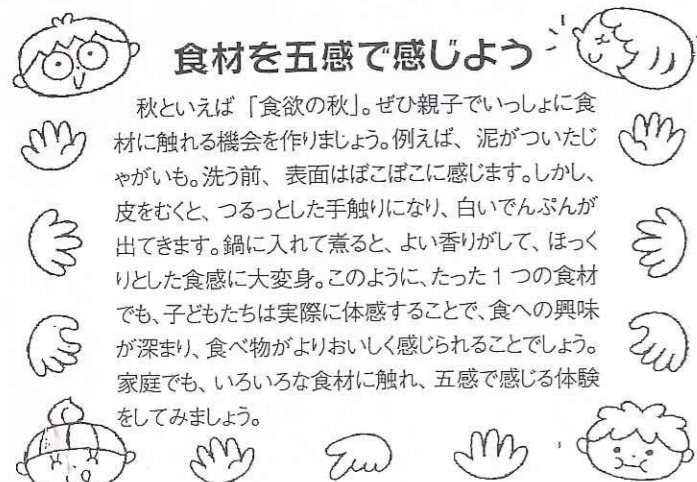 食材を五感で感じよう
秋といえば「食欲の秋」。ぜひ親子でいっしょに食
材に触れる機会を作りましょう。例えば、泥がついたじ
ゃがいも。洗う前、表面はぼこぼこに感じます。しかし、
皮をむくと、つるっとした手触りになり、白いでんぷんが
出てきます。鍋に入れて煮ると、よい香りがして、ほっく
りとした食感に大変身。このように、たった1つの食材
でも、子どもたちは実際に体感することで、食への興味
が深まり、食べ物がよりおいしく感じられることでしょう。
家庭でも、いろいろな食材に触れ、五感で感じる体験
をしてみましょう。